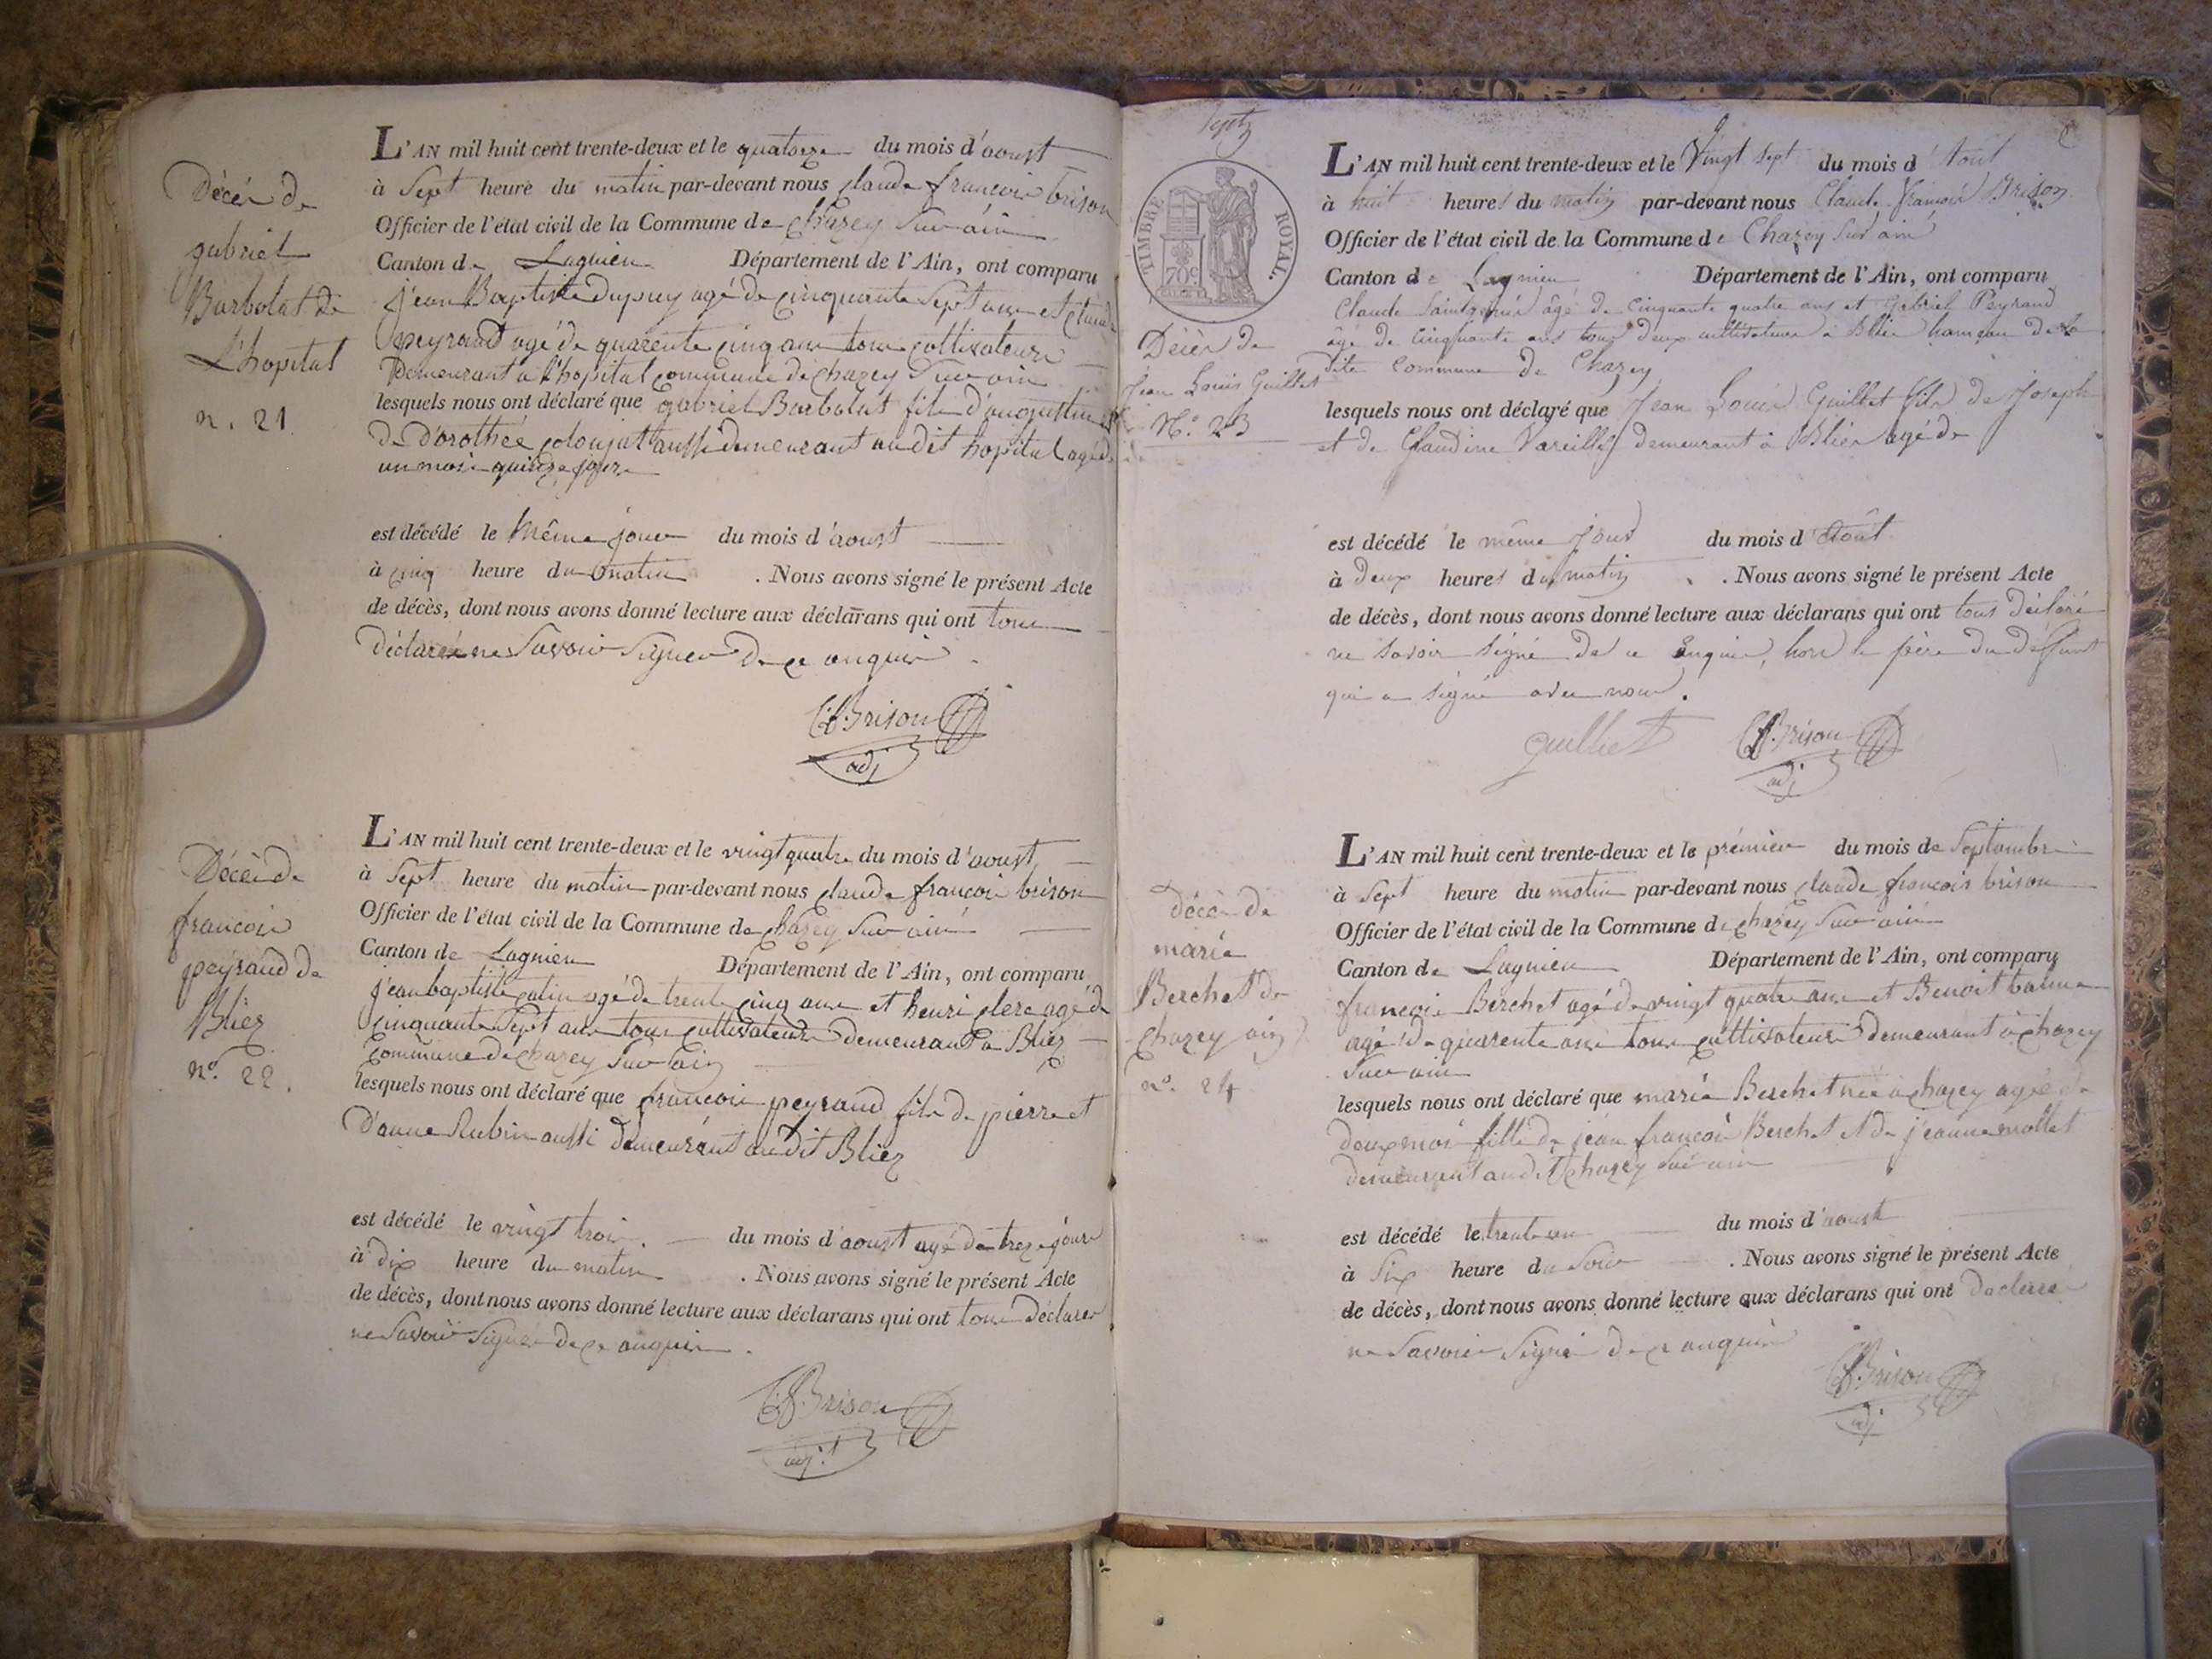 Décès de
gabriel
Barbolat de
L'hopital
n. 21
L'AN mil huit cent trente-deux et le quatorze du mois d'aoust
à Sept heure du matin par-devant nous claude francois brison
Officier de l'état civil de la Commune de Chazey Sur ain
Canton de Lagnieu Département de l'Ain, ont comparu
jean Baptiste dupuy agé de cinquante Sept ans et claude
peyraud agé de quarente cinq ans tous cultivateurs
Demeurant a l'hopital commune de chazey Sur ain
lesquels nous ont déclaré que gabriel Barbolat fils d'augustin et
De D'orothée aussi demeurant au dit hopital agé de
un mois quinze jours
est décédé le même jour du mois d'aoust
à cinq heure du matin . Nous avons signé le présent Acte
de décès, dont nous avons donné lecture aux déclarans qui ont tous
Déclaré ne Savoir Signer de ce enquis
C.f.Brison
adj
Décès de
francois
peyraud de
Bliez
n.º 22.
L'AN mil huit cent trente-deux et le vingt quatre du mois d'aoust
à Sept heure du matin par-devant nous claude francois brison
Officier de l'état civil de la Commune de chazey Sur ain
Canton de Lagnieu Département de l'Ain, ont comparu
jean baptiste catin agé de trente cinq ans et henri clerc agé de
cinquante Sept ans tous cultivateurs demeurant a Bliez
commune de chazey Sur ain
lesquels nous ont déclaré que francois peyraud fils de pierre et
D'anne Rubin aussi demeurant au dit Bliez
est décédé le vingt trois . du mois d'aoust agé de treze jours
à dix heure du matin . Nous avons signé le présent Acte
de décès, dont nous avons donné lecture aux déclarans qui ont tous déclarer
ne Savoir Signer de ce enquis .
C.f.Brison
adj.t
Sept
TIMBRE ROYAL.
70c
Décès de
Jean Louis Guillet
N.º 23
L'AN mil huit cent trente-deux et le Vingt Sept du mois d'Aout
à huit heures du matin par-devant nous Claude François Brison
Officier de l'état civil de la Commune de Chazey Sur ain
Canton de Lagnieu Département de l'Ain, ont comparu
Claude âgé de Cinquante quatre ans et Gabriel Peyraud
âgé de Cinquante ans tous deux cultivateurs à Bliez hameau de la
dite Commune de Chazey
lesquels nous ont déclaré que Jean Louis Guillet fils de Joseph
et de Claudine Vareilles demeurant à Bliez agé de
est décédé le même Jour du mois d'Août
à deux heures du matin . Nous avons signé le présent Acte
de décès, dont nous avons donné lecture aux déclarans qui ont tous déclaré
ne savoir signé de ce Enquis, hors le père du deffunt
qui a signé avec nous.
guilliet C.f.Brison
adj
Décès de
marie
Berchet de
Chazey ain
n.º 24
L'AN mil huit cent trente-deux et le prémier du mois de Septembre
à Sept heure du matin par-devant nous claude francois brison
Officier de l'état civil de la Commune de chazey Sur ain
Canton de Lagnieu Département de l'Ain, ont comparu
francois Berchet agé de vingt quatre ans et Benoit balme
agé de quarente ans tous cultivateurs demeurant à chazey
Sur ain
lesquels nous ont déclaré que marie Berchet née a chazey agée de
deux mois fille de jean francois Berchet et de jeanne mollet
demeurant au dit chazey Sur ain
est décédé le trente un du mois d'aoust
à Six heure du Soir . Nous avons signé le présent Acte
de décès, dont nous avons donné lecture aux déclarans qui ont déclaré
ne Savoir Signé de ce enquis
C.f.Brison
adj